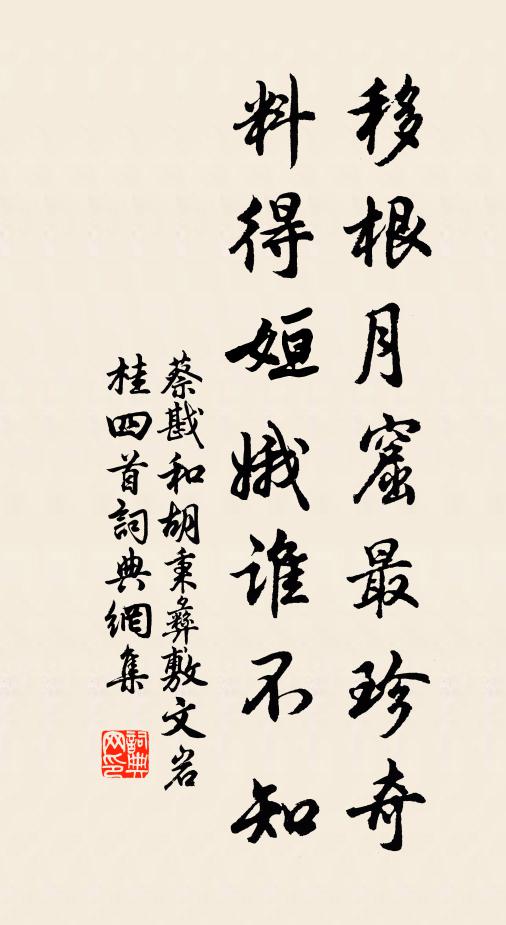 移根月窟最珍奇
料得姮娥誰不知
蔡戡和胡秉彝敷文岩
桂四首詞典網集
詞典网印